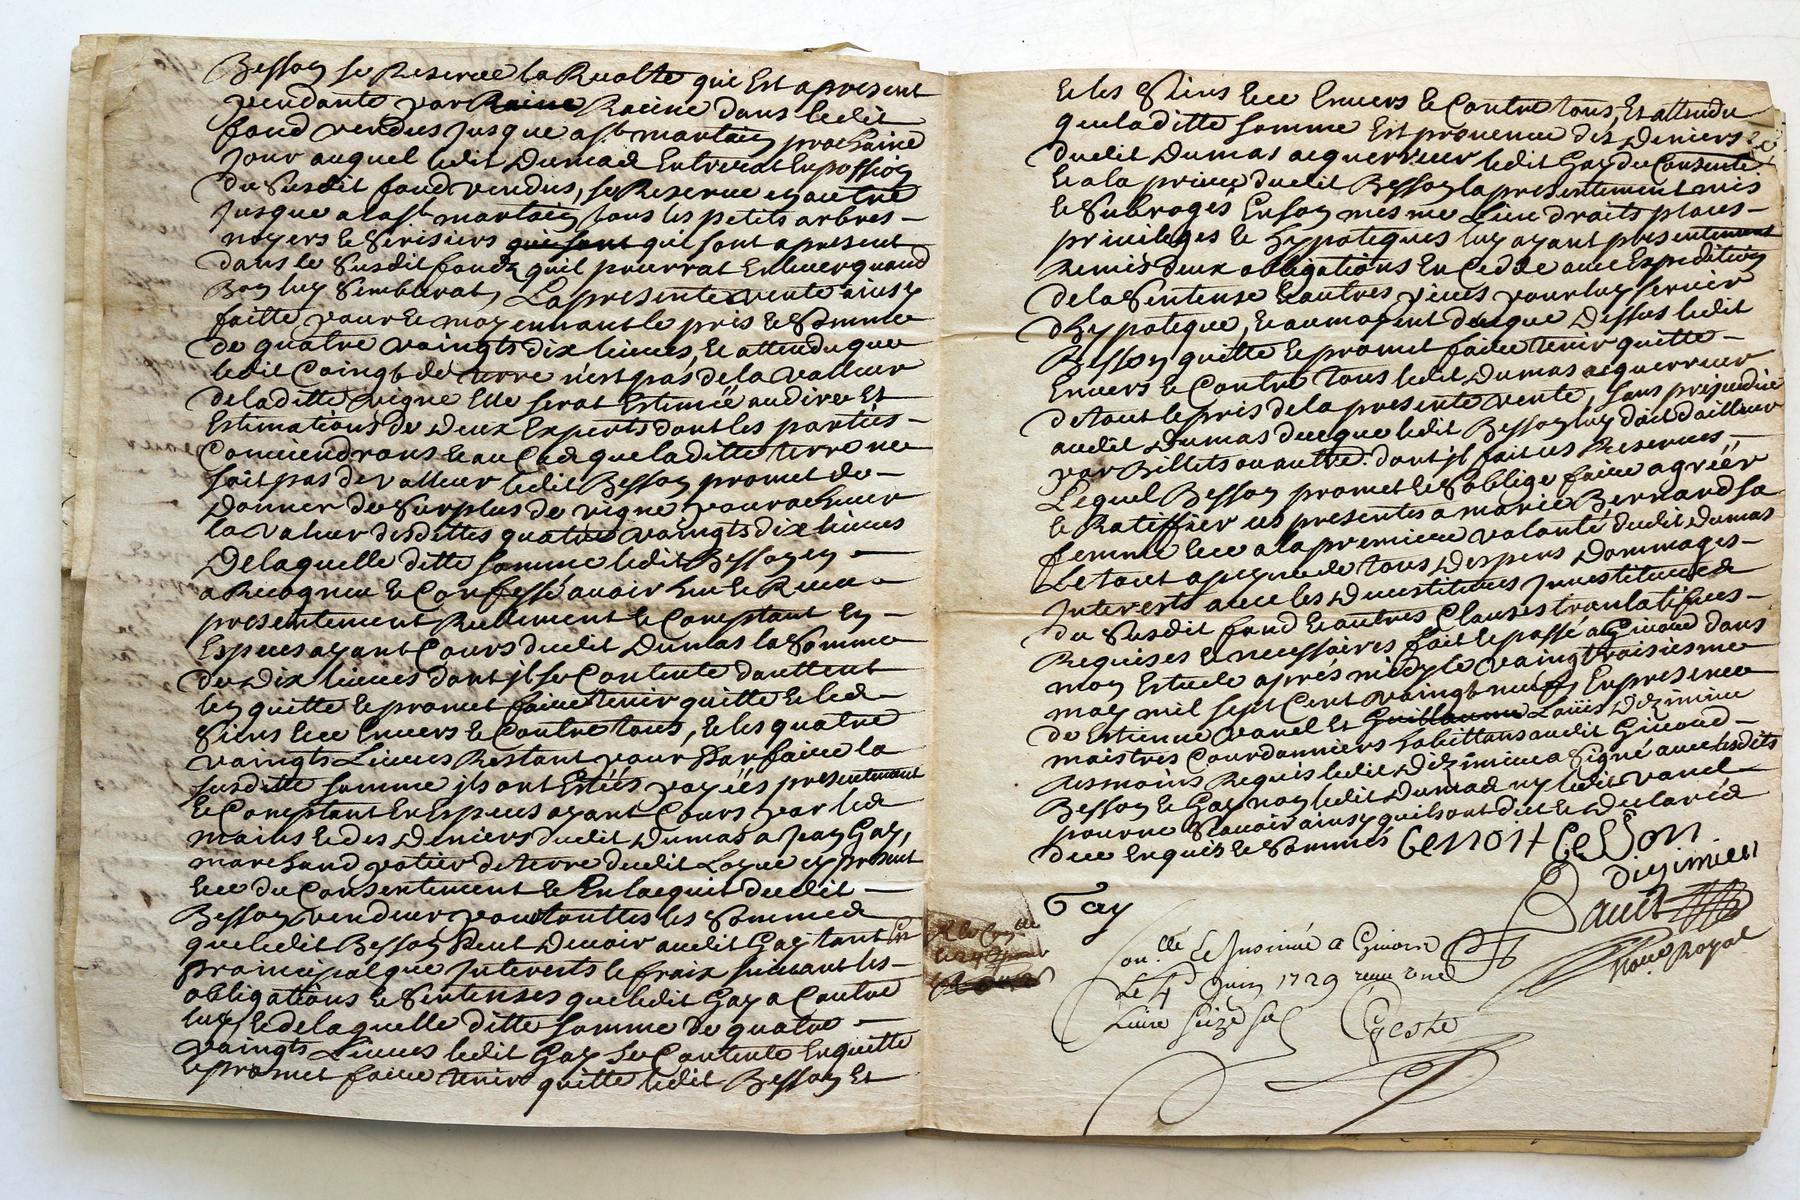 Besson se Reserve la Recolte qui Est apresent
pendante par Racine dans ledit
fond vendus Jusque a st martain prochaine
Jour auquel ledit Dumas Entrerat En possion
du Susdit fond vendus, se Reserve en autre
Jusque a la st martain tous les petits arbres
noyers & Serisiers qui sont qui sont apresent
dans le Susdit fond quil pourrat Enlever quand
Bon luy Semblerat, La presente vente ainsy
faitte pour & moyennant le pris & Somme
de quatre vaingts dix livres, & attendu que
ledit Coingt de terre n'est pas de la valleur
de la ditte vigne Elle serat Estimée au dire Et
Estimations de Deux Experts dont les parties
Conviendrons & au Cas que la ditte terre ne
soit pas de valleur ledit Besson promet de
Donner de Surplus de vigne pour achever
la valeur desdittes quatre vaingts dix livres
De laquelle ditte somme ledit Besson en
a Recogneu & Confessé avoir heu & Receu
presentement Reellement & Comptant En
Especes ayant Cours dudit Dumas la Somme
de Dix livres dont jl se Contente dauttent
len quitte & promet faire tenir quitte & les
Siens & ce Envers & Contre tous, & les quatre
vaingts Livres Restant pour Parfaire la
susditte somme jls ont Estés payées presentement
& Comptant En Especes ayant Cours par les
mains & des Deniers dudit Dumas a Jean Gay,
marchand potier de terre dudit Logue cy present
& ce du Consentement & En lacquit dudit
Besson vendeur pour touttes les Sommes
que ledit Besson peut Devoir audit Gay tant En
praincipal que Interests & fraix suivant les
obligations & Sentenses que ledit Gay a Contre
luy & de laquelle ditte somme de quatre
vaingts Livres ledit Gay se Contente En quitte
& promet faire tenir quitte ledit Besson Et
& les Siens & ce Envers & Contre tous, Et attendu
que la ditte somme Est provenue des Deniers
dudit Dumas acquerreur ledit Gay du Consente
& a la priere dudit Besson la presentement mis
& Subroges En son mesme Lieu droits places
privileges & hypoteques luy ayant presentement
Remis deux obligations En Cedde avec Expedition
de la Sentense & autres pieces pour luy servir
dhypoteque, & au moyent de ce que Dessus ledit
Besson quitte & promet faire tenir quitte
Envers & Contre tous ledit Dumas acquerreur
de tout le pris de la presente vente, sans prejudice
audit Dumas de ce que ledit Besson luy doit dailleur
par Billets ou autre. dont jl fait ses Reserves,
Lequel Besson promet & soblige faire agréer
& Ratiffier ces presentes a marie Bernard sa
femme & ce a la premiere volonté dudit Dumas
Le tout a peyne de tous Despens Dommages
Interests avec les Devestitures Investitures
du Susdit fond & autres Clauses translatifves
Requises & necessaires fait & passé a Givors dans
mon Estude aprés midy le vaingt troisiesme
may mil sept Cent vaingt neuf En presence
de Estienne vanel Et Guillaume Loüis Dizimieu
maistres Courdonniers habittans audit Givors
tesmoins Requis ledit Dizimieu a Signé avec lesdits
Besson & Gay non ledit Dumas ny ledit vanel
pour ne Scavoir ainsy quils ont dit & Declarés
de ce Enquis & Sommés benoit beson
dizimieu
Gay
not.e Royal
Con.llé & Insinué a Givors
Le 4.e Juin 1729 receu une
Livre seize sols